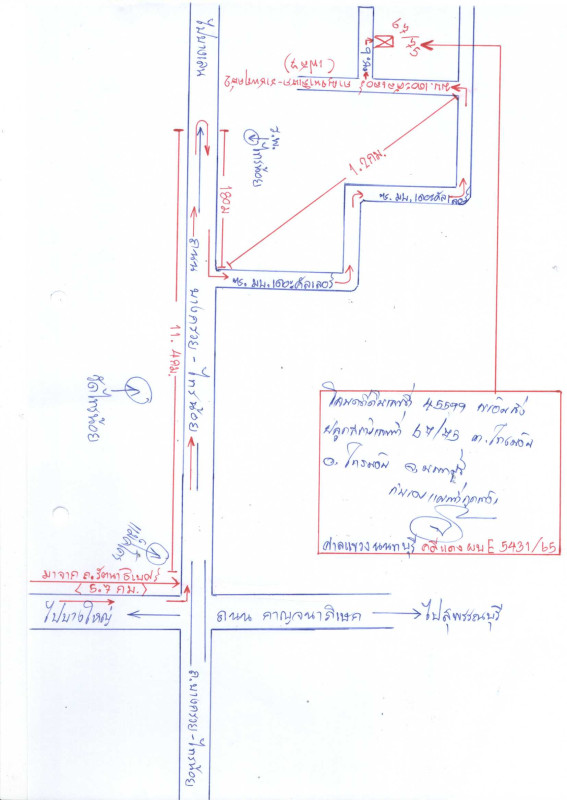 ไปบางเลน
ร.พ.
ไทรน้อย
180ม
1.2กม.
ถนน บางกรวย - ไทรน้อย
11.4กม.
ซ. มบ.เดอะคัลเลอร์
ซ. มบ.เดอะคัลเลอร์
มบ.เดอะคัลเลอร์
กาญจนาภิเษก-ราชพฤกษ์2
โฉนดที่ดินเลขที่ 45599 พร้อมสิ่ง
ปลูกสร้างเลขที่ 67/73 ต.ไทรน้อย
อ. ไทรน้อย จ.นนทบุรี
ศาลแขวงนนทบุรี คดีแดง ผบE 5431/65
มาจาก ถ.รัตนาธิเบศร์
(5.7 กม.)
ไปบางใหญ่
ถนน กาญจนาภิเษก
ไปสุพรรณบุรี
ถ.บางกรวย-ไทรน้อย